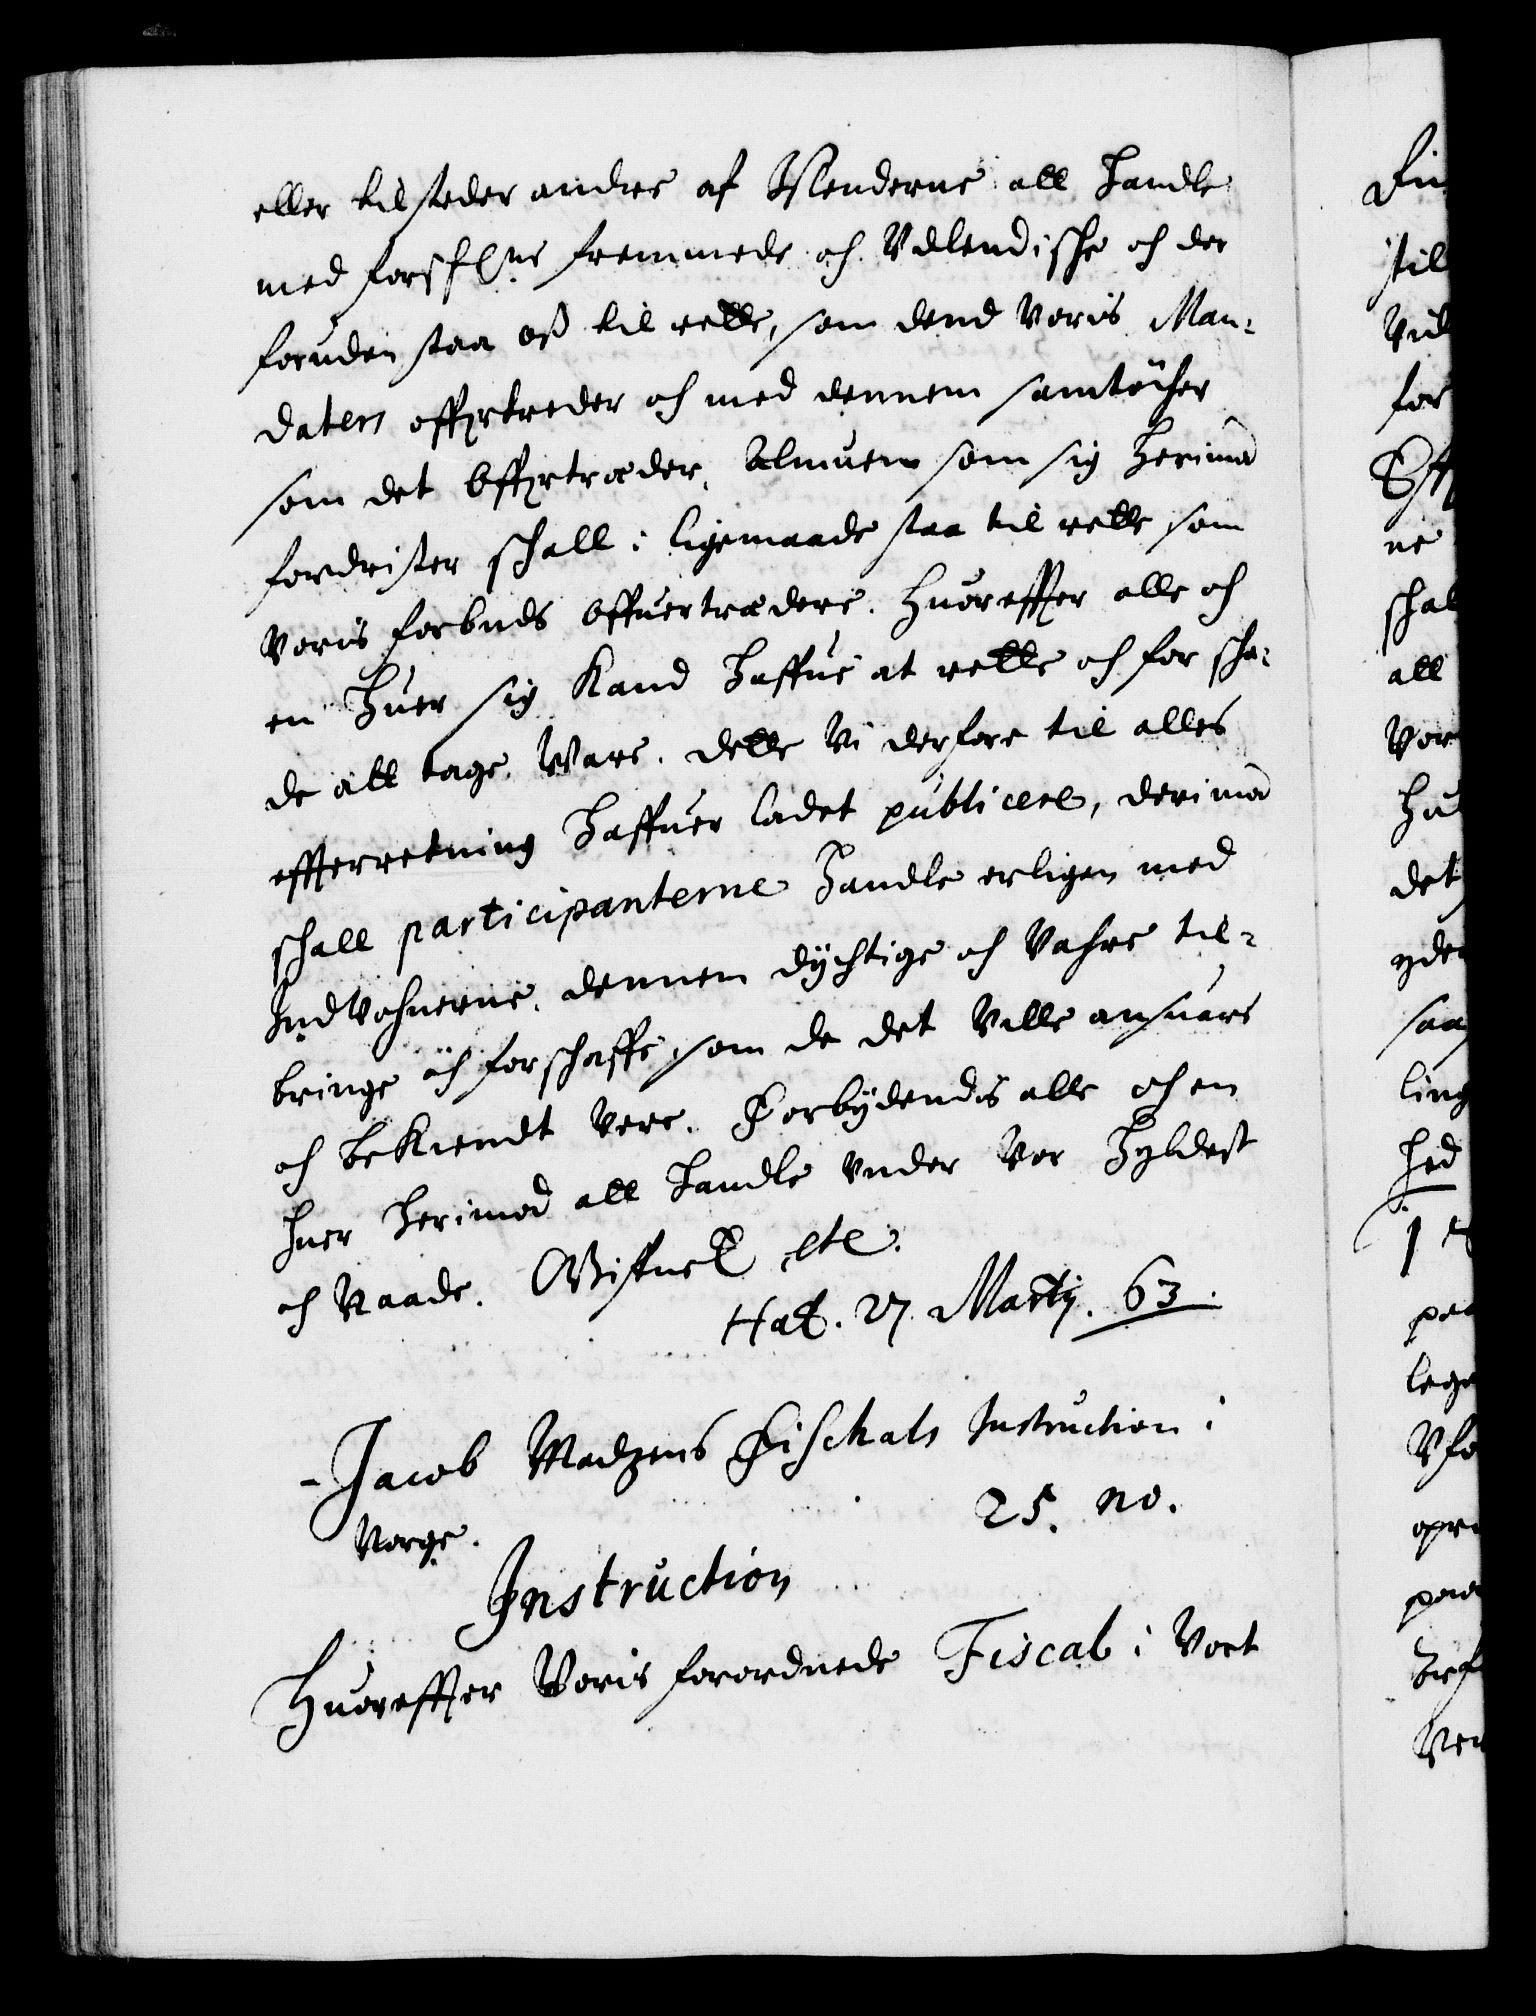 eller tilsteder andre af Benderne att handle
med forschne fremmede och Udlendische och der
foruden staa oß til rette, som dend voris Man-
daters offrtreder och med dennem samtöcher
som det Offrtræder, Almuen som sig herimod
fordrister schall i ligemaade staa til rette som
Voris forbuds Offuertrædere. Huoreffter alle och
en huer sig kand haffue at rette och for scha-
de att tage Ware. Dette Vi derfore til alles
effterretning haffuer ladet publicere, derimod
schall participanterne handle erligen med
Indvohnerne, dennem dÿchtige och Vahre til-
bringe och forschaffe, som de det Ville ansuare
och bekiendt vere. Forbÿdendis alle och en
huer herimod att handle under Vor hyldest
och Naade. Giffuet etc.
Haf. 27. Martij. 63.
Jacob Madzens Fischals Instruction i
Norge.
25. no.
Instruction
Huoreffter Voris forordnede Fiscal i Vort
til
for
ne
schal
all
Vor
det
saa
ling
hed
1